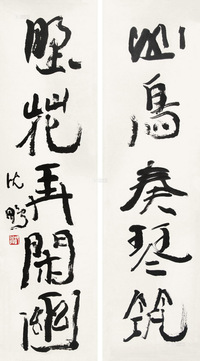 山鳥奏琴筑
野花弄閑幽
沈鵬